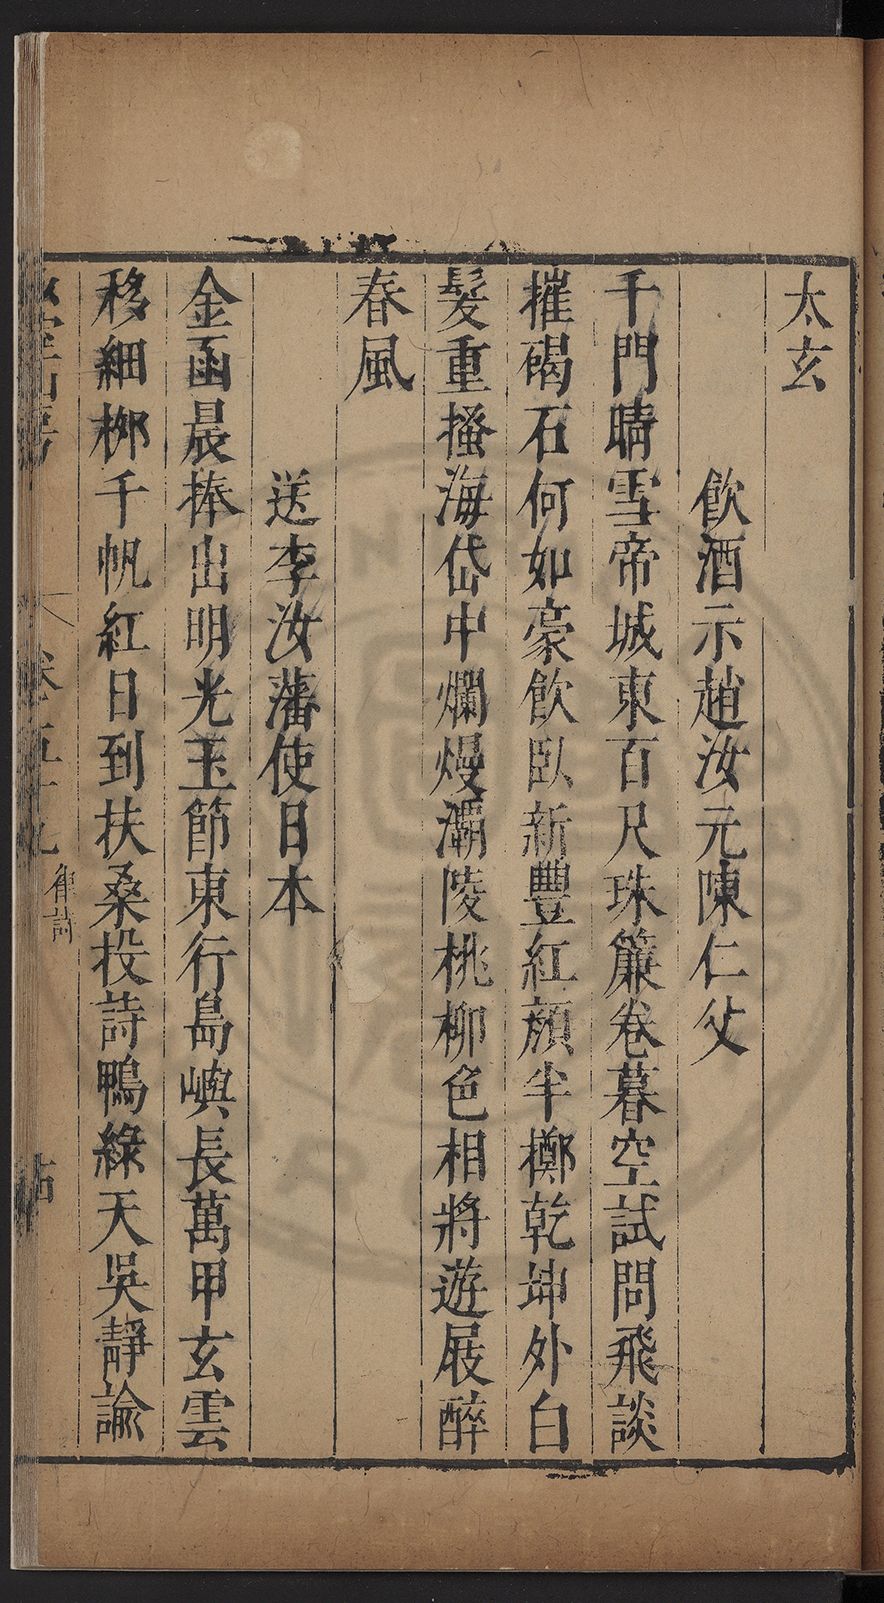 太玄
飲酒示趙汝元陳仁父
千門晴雪帝城東百尺珠簾卷暮空試問飛談
摧碣石何如豪飲臥新豐紅顏半擲乾坤外白
髮重搔海岱中爛熳灞陵桃柳色相將遊屐醉
春風
送李汝藩使日本
金函晨捧出明光玉節東行島嶼長萬甲玄雲
移細柳千帆紅日到扶桑投詩鴨綠天吳靜諭
卷五十九
律詩